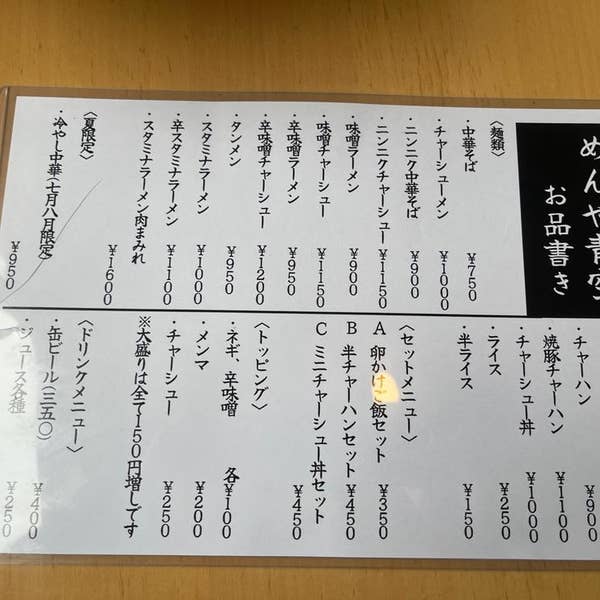 めんや青空
お品書き
〈麺類〉
・中華そば ¥750
・チャーシューメン ¥1000
・ニンニク中華そば ¥900
・ニンニクチャーシュー ¥1150
・味噌ラーメン ¥900
・味噌チャーシュー ¥1150
・辛味噌ラーメン ¥950
・辛味噌チャーシュー ¥1200
・タンメン ¥950
・スタミナラーメン ¥1000
・辛スタミナラーメン ¥1100
・スタミナラーメン肉まみれ ¥1600
〈夏限定〉
・冷やし中華(七月八月限定) ¥950
・チャーハン ¥900
・焼豚チャーハン ¥1100
・チャーシュー丼 ¥1000
・ライス ¥250
・半ライス ¥150
〈セットメニュー〉
A 卵かけご飯セット ¥350
B 半チャーハンセット ¥450
C ミニチャーシュー丼セット ¥450
〈トッピング〉
・ネギ、辛味噌 各¥100
・メンマ ¥200
・チャーシュー ¥250
※大盛りは全て150円増しです
〈ドリンクメニュー〉
・缶ビール(三五〇) ¥400
・ジュース各種 ¥250